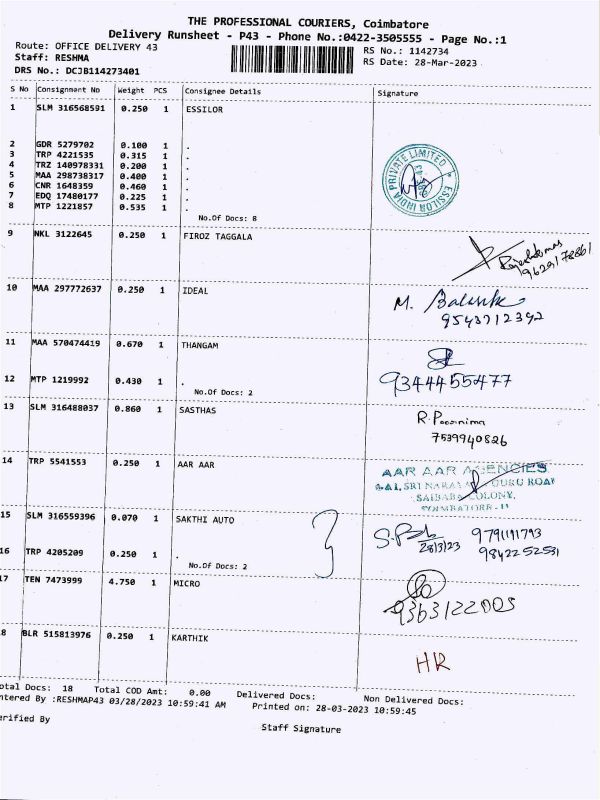 THE PROFESSIONAL COURIERS, Coimbatore
Delivery Runsheet - P43 - Phone No.:0422-3505555 - Page No.:1
Route: OFFICE DELIVERY 43 RS No.: 1142734
Staff: RESHMA RS Date: 28-Mar-2023
DRS No.: DCJB114273401
S No Consignment No Weight PCS Consignee Details Signature
1 SLM 316568591 0.250 1 ESSILOR
2 GDR 5279702 0.100 1 .
3 TRP 4221535 0.315 1 .
4 TRZ 140978331 0.200 1 .
5 MAA 298738317 0.400 1 .
6 CNR 1648359 0.460 1 .
7 EDQ 17480177 0.225 1 .
8 MTP 1221857 0.535 1 .
ESSILOR INDIA PRIVATE LIMITED
No.Of Docs: 8
9 NKL 3122645 0.250 1 FIROZ TAGGALA
10 MAA 297772637 0.250 1 IDEAL M.
9543712392
11 MAA 570474419 0.670 1 THANGAM
12 MTP 1219992 0.430 1 . 9344455477
No.Of Docs: 2
13 SLM 316488037 0.860 1 SASTHAS R. Poornima
7539940826
14 TRP 5541553 0.250 1 AAR AAR AAR AAR AGENCIES
SRI GURU ROAD
SAIBABA COLONY,
COIMBATORE-11
15 SLM 316559396 0.070 1 SAKTHI AUTO 28/3/23 9791191793
9842252531
16 TRP 4205209 0.250 1 .
No.Of Docs: 2
17 TEN 7473999 4.750 1 MICRO
9363122005
8 BLR 515813976 0.250 1 KARTHIK HR
otal Docs: 18 Total COD Amt: 0.00 Delivered Docs: Non Delivered Docs:
ntered By :RESHMAP43 03/28/2023 10:59:41 AM Printed on: 28-03-2023 10:59:45
erified By Staff Signature